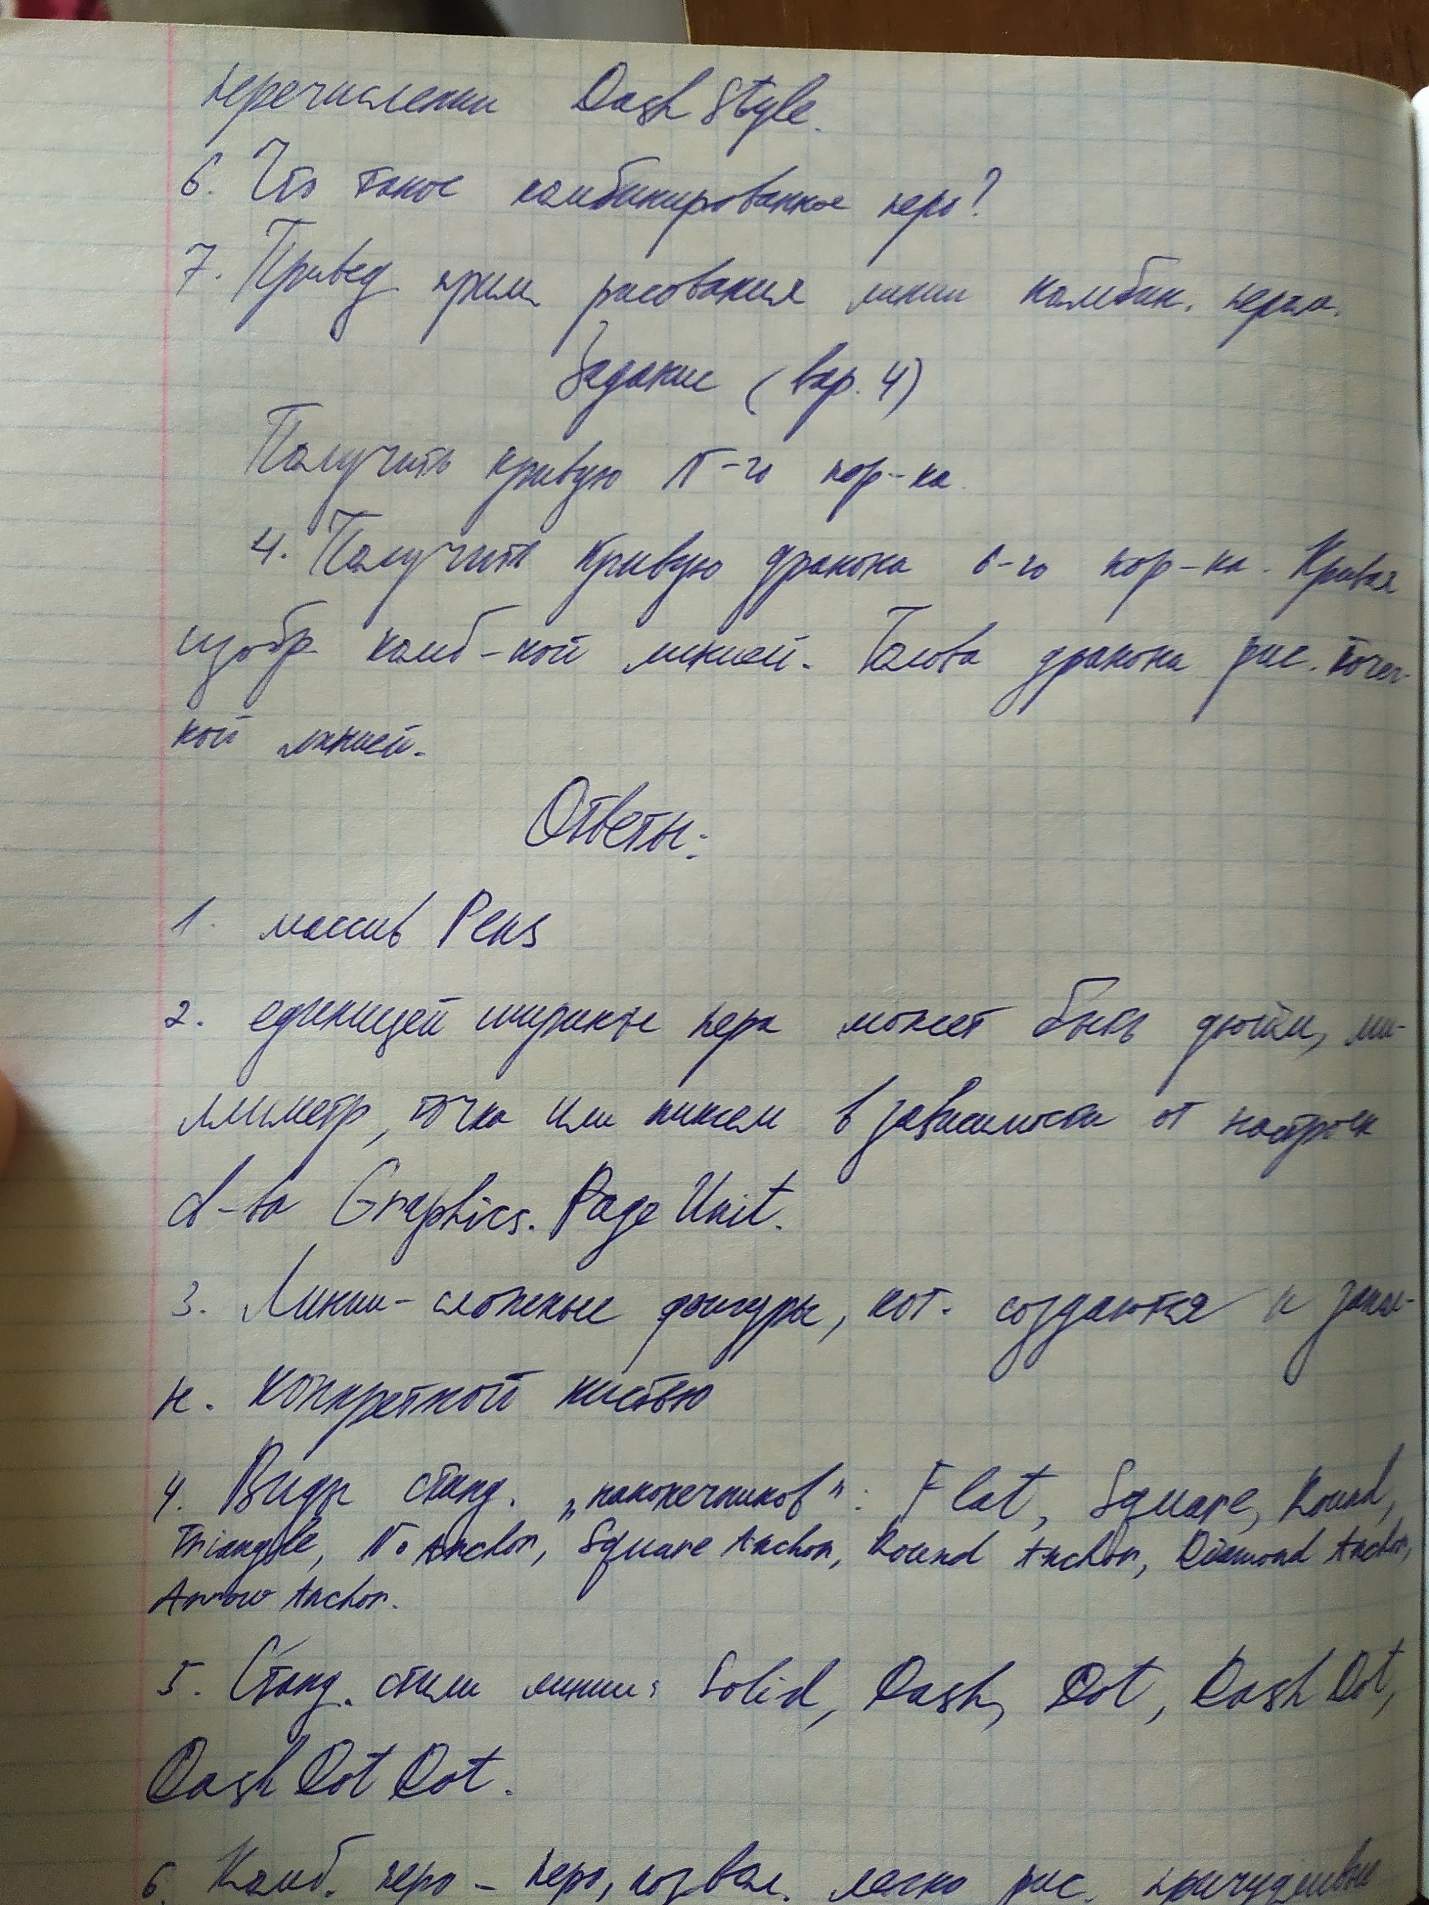 перечислении DashStyle.
6. Что такое комбинированное перо?
7. Привед. прим. рисования линии комбин. пером.
Задание (вар. 4)
Получить кривую N-го пор-ка.
4. Получить кривую дракона 6-го пор-ка. Кривая
изобр. комб-ной линией. Голова дракона рис. точеч-
ной линией.
Ответы:
1. массив Pens
2. единицей ширины пера может быть дюйм, ми-
ллиметр, точка или пиксел в зависимости от настроек
Graphics.PageUnit.
3. Линии - сложные фигуры, кот. создаются и
конкретной кистью
4. Виды станд. „наконечников": Flat, Square, Round,
Triangle, No Anchor, Square Anchor, Round Anchor, Diamond Anchor,
Arrow Anchor.
5. Станд. стили линии: Solid, Dash, Dot, DashDot,
DashDotDot.
6. Комб. перо - перо, позвол. легко рис. причудливые